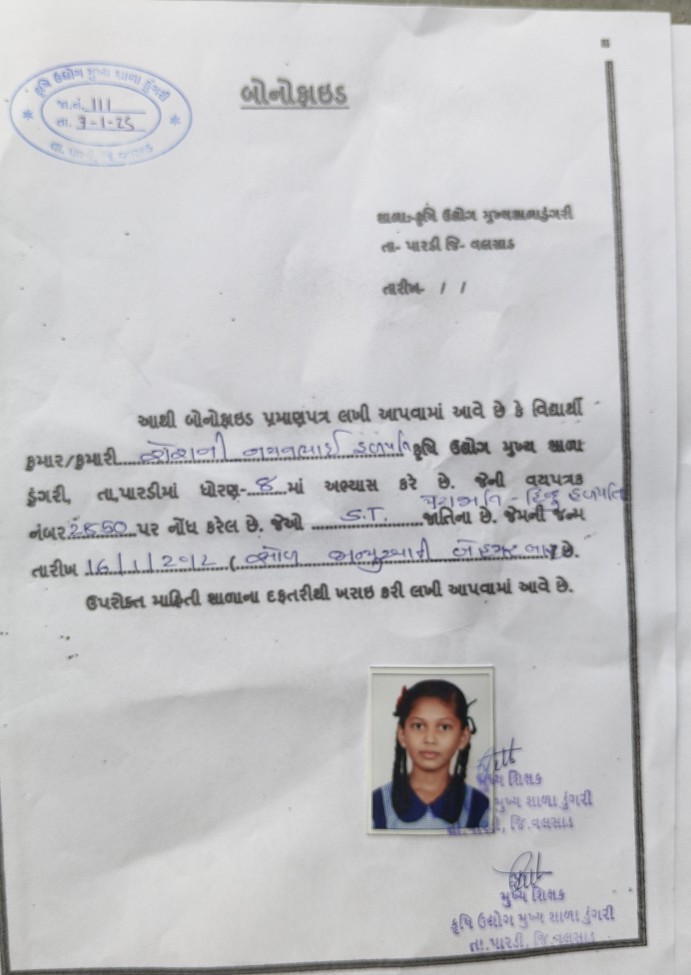 કૃષિ ઉદ્યોગ મુખ્ય શાળા ડુંગરી
જા.નં. 111
તા. 7-1-25
તા. પારડી, જિ. વલસાડ
બોનોફાઇડ
શાળા:-કૃષિ ઉદ્યોગ મુખ્યશાળાડુંગરી
તા- પારડી જિ- વલસાડ
તારીખ- / /
આથી બોનોફાઇડ પ્રમાણપત્ર લખી આપવામાં આવે છે કે વિદ્યાર્થી
કુમાર/કુમારી નયનભાઈ હળપતિ કૃષિ ઉદ્યોગ મુખ્ય શાળા
ડુંગરી, તા.પારડીમાં ધોરણ- 8 માં અભ્યાસ કરે છે. જેની વયપત્રક
પેટાજાતિ - હિન્દુ હળપતિ
નંબર 2850 પર નોંધ કરેલ છે. જેઓ S.T. જાતિના છે. જેમની જન્મ
તારીખ 16/1/2012 ( સોળ જાન્યુઆરી બે હજાર બાર છે.
ઉપરોક્ત માહિતી શાળાના દફતરીથી ખરાઇ કરી લખી આપવામાં આવે છે.
મુખ્ય શિક્ષક
મુખ્ય શાળા ડુંગરી
તા. પારડી, જિ.વલસાડ
મુખ્ય શિક્ષક
કૃષિ ઉદ્યોગ મુખ્ય શાળા ડુંગરી
તા.પારડી, જિ.વલસાડ